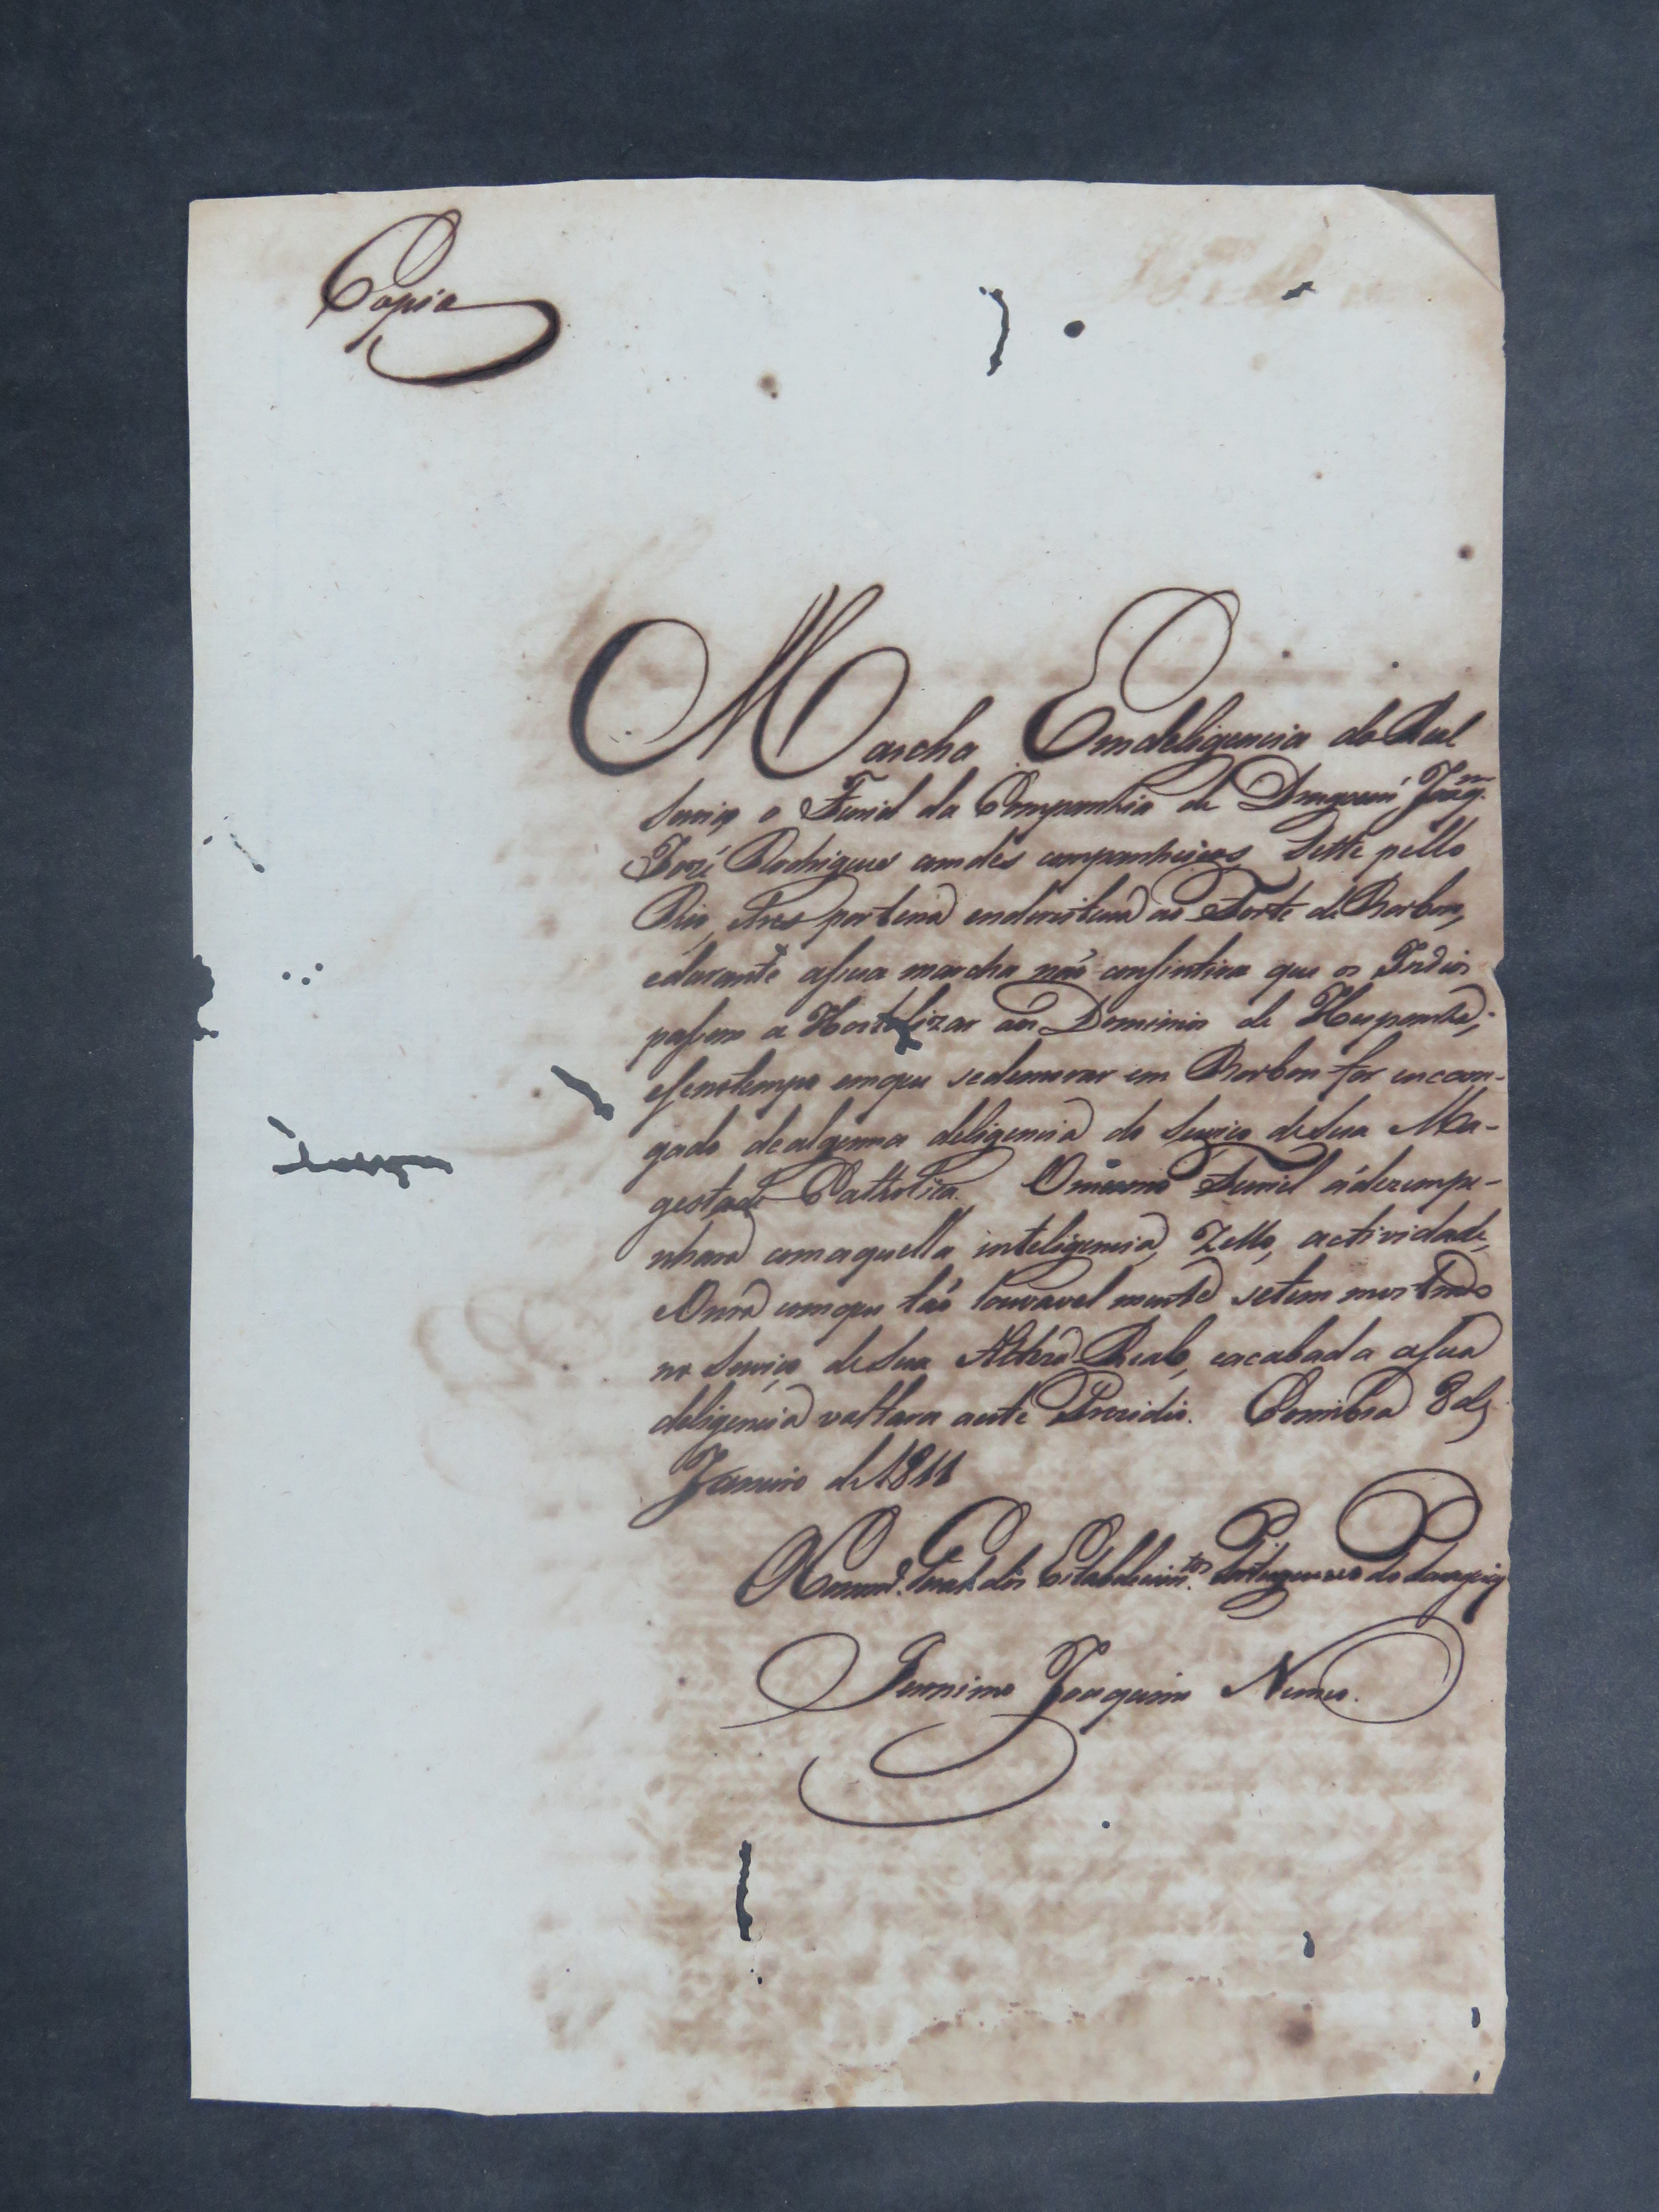 Copia
Marcha Emdeligencia do Real
Serviço o Furriel da Companhia de Dragoens Joaq.^m
José Rodrigues com dés companheiros Sette pello
Rio, tres por terra em direitura ao Forte de Borbon,
e durante a sua marcha não consintira que os Indios
passem a Hostelizar aos Dominios de Hespanha;
e se no tempo em que se demorar em Borbon for encarr-
gado de alguma deligencia do Serviço de Sua Ma-
gestade Catholica. O mesmo Furriel a dezempe-
nhara com aquella inteligencia, Zello, actividade,
e Onra com que tão louvavel mente se tem mostrado
no Serviço de Sua Alteza Real, e acabada a sua
deligencia voltara a este Prezidio. Coimbra 8 de
Janeiro de 1811
O Comand.^e Geral dos Estabelecim.^tos Portuguezes do Paraguay
Jeronimo Joaquim Nunes.